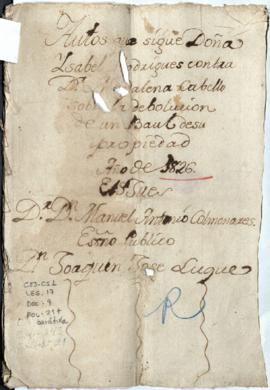 Autos que sigue Doña
Ysabel Rodrigues contra
Dª Magdalena Cabello
sobre la debolucion
de un Baul de su
propiedad
Año de 1826.
El S. Jues
D.r D.n Manuel Antonio Colmenares
Esno Publico
D.n Joaquin Jose Luque
CSJ-CS1
LEG. 17
DOC. 9
FOL. 21 +
carátula
R